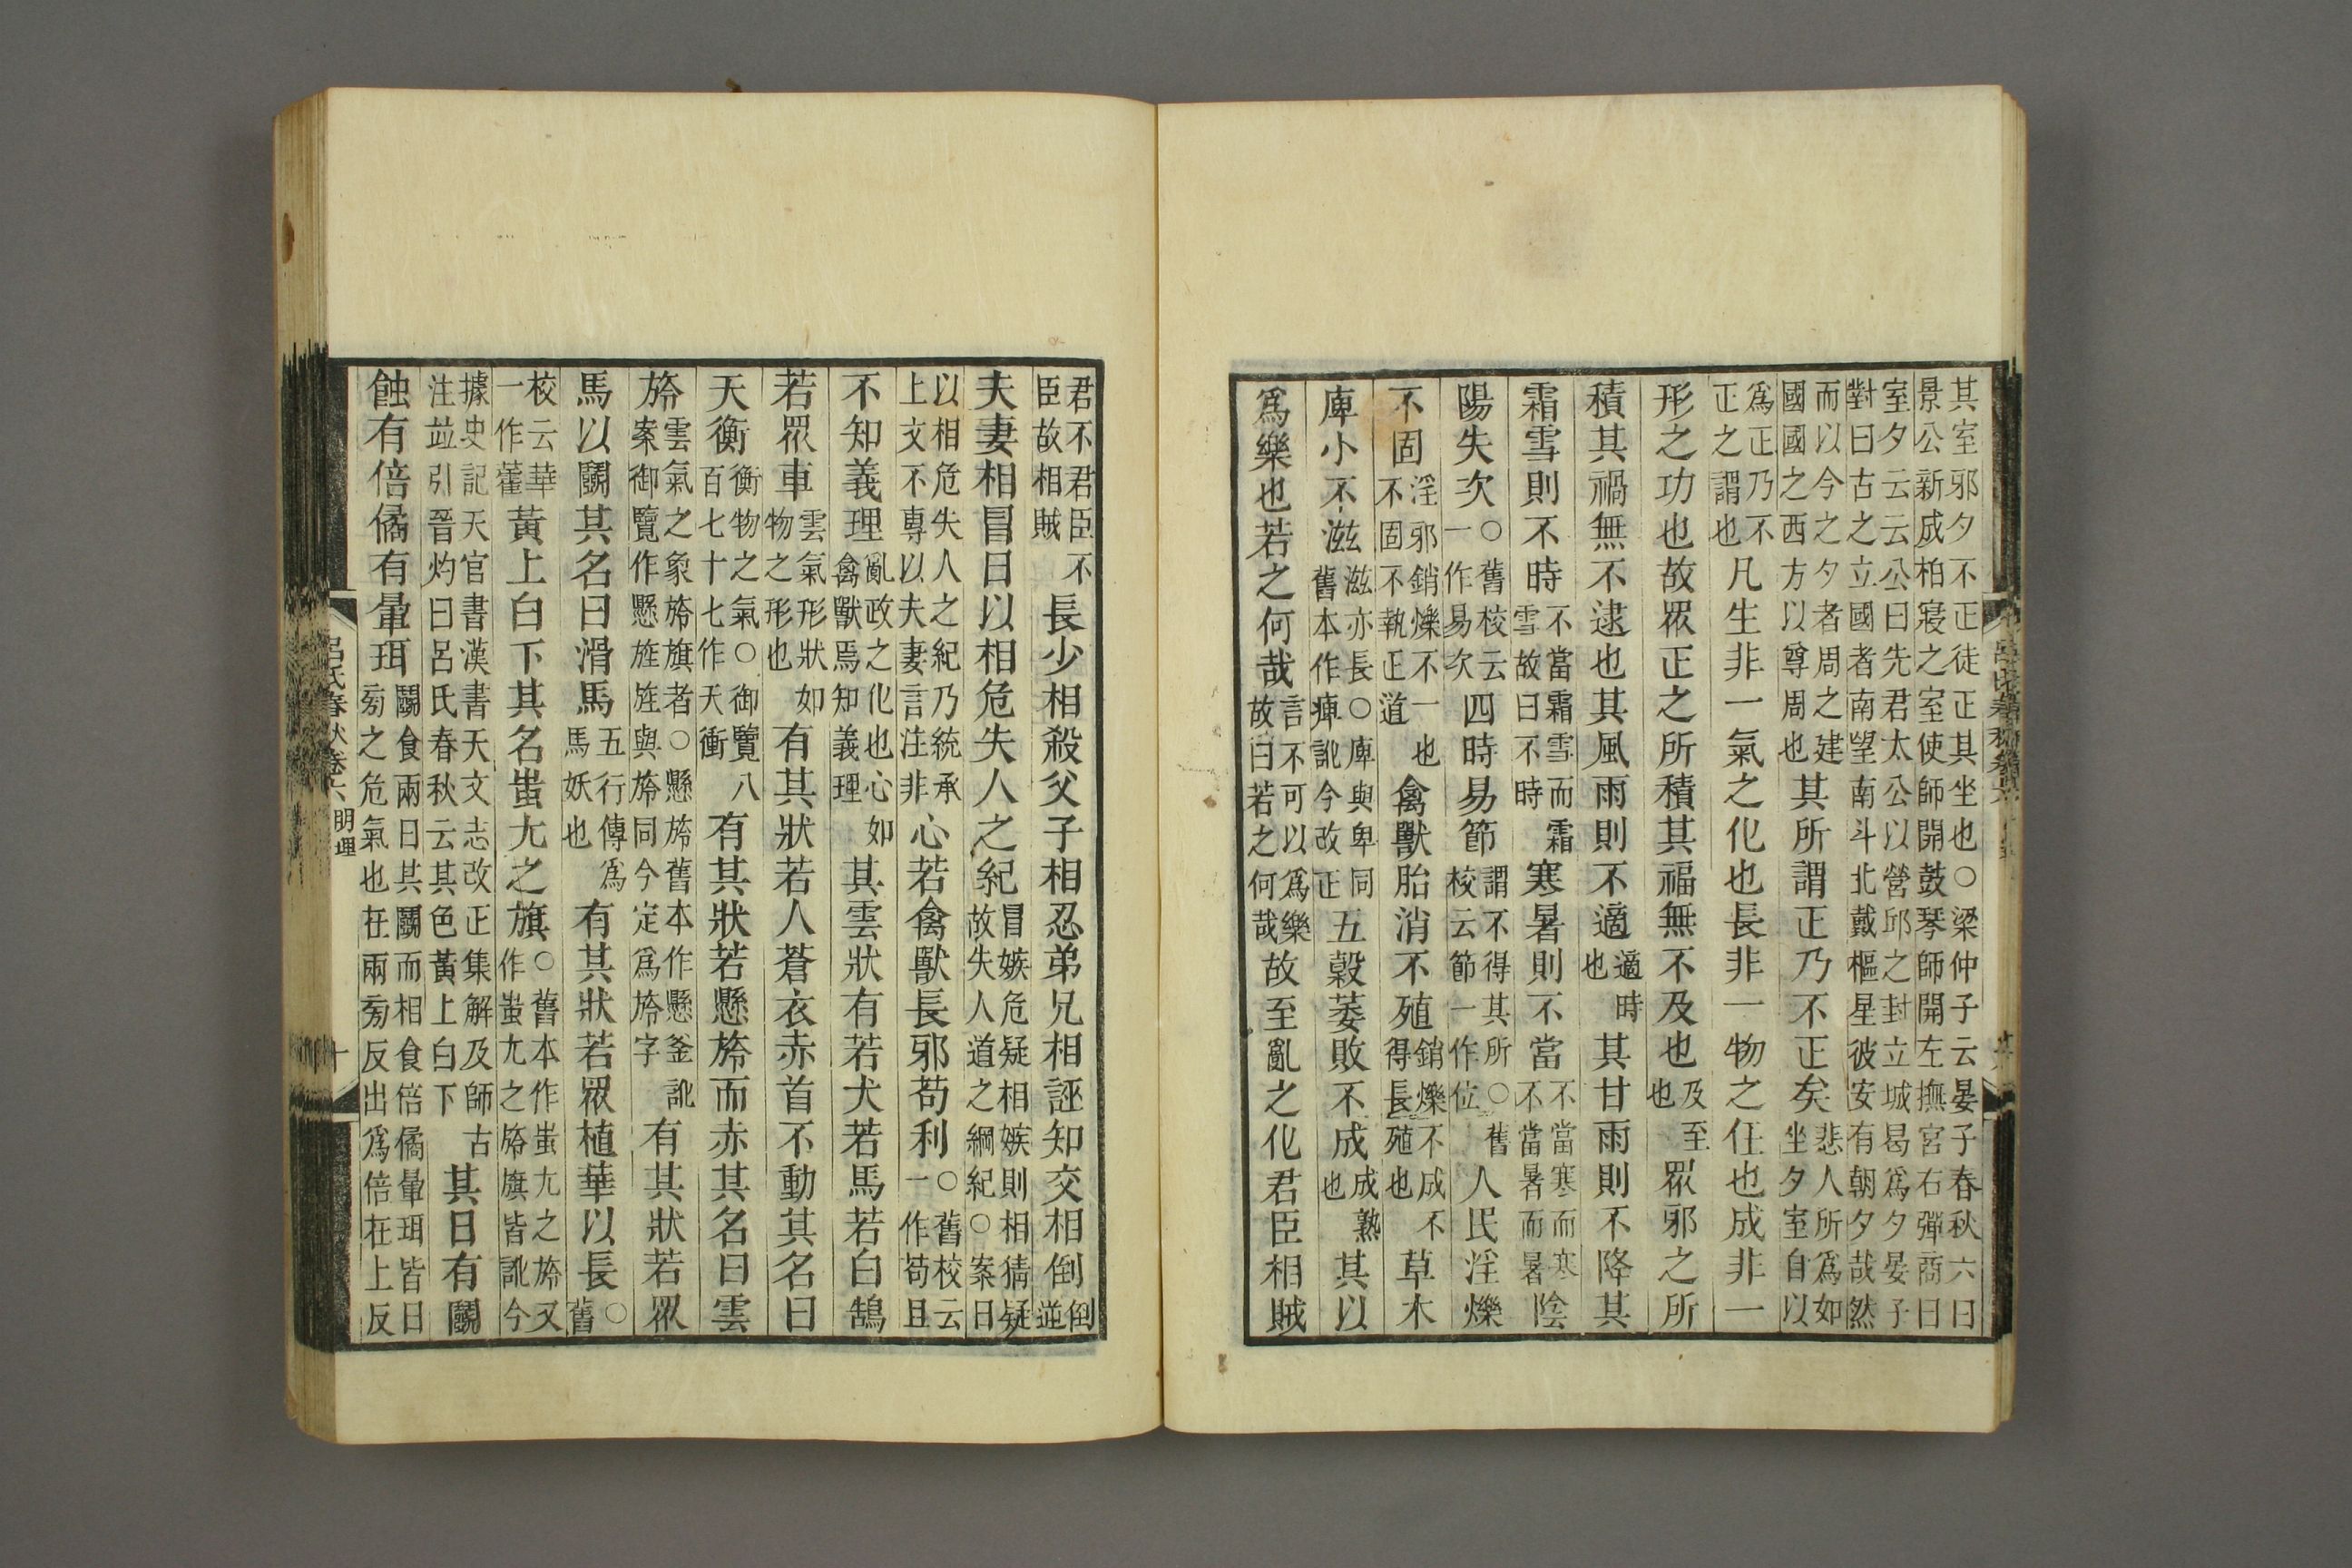 其室邪夕不正徒正其坐也○梁仲子云晏子春秋六曰
景公新成柏寢之室使師開鼓琴師開左撫宮右彈商曰
室夕云云公曰先君太公以營邱之封立城曷爲夕晏子
對曰古之立國者南望南斗北戴樞星彼安有朝夕哉然
而以今之夕者周之建國國之西方以尊周也其所謂正乃不正矣悲人所爲如坐夕室自以
爲正乃不正之謂也凡生非一氣之化也長非一物之任也成非一
形之功也故眾正之所積其福無不及也及至也眾邪之所
積其禍無不逮也其風雨則不適適時也其甘雨則不降其
霜雪則不時不當霜雪而霜雪故曰不時寒暑則不當不當寒而寒不當暑而暑陰
陽失次○舊校云一作易次四時易節謂不得其所○舊校云節一作位人民淫爍
不固淫邪銷爍不一也不固不執正道禽獸胎消不殖銷爍不成不得長殖也草木
庳小不滋滋亦長○庳與卑同舊本作痺訛今改正五穀萎敗不成成熟也其以
爲樂也若之何哉言不可以爲樂故曰若之何哉故至亂之化君臣相賊
君不君臣不臣故相賊長少相殺父子相忍弟兄相誣知交相倒倒道
夫妻相冒日以相危失人之紀冒嫉危疑相嫉則相猜疑故失人道之綱紀○案日
以相危失人之紀乃統承上文不專以夫妻言注非心若禽獸長邪苟利○舊校云一作苟且
不知義理亂政之化也心如禽獸焉知義理其雲狀有若犬若馬若白鵠
若眾車雲氣形狀如物之形也有其狀若人蒼衣赤首不動其名曰
天衡衡物之氣○御覽八百七十七作天衝有其狀若懸旍而赤其名曰雲
旍雲氣之象旍旗者○懸旍舊本作懸釜訛案御覽作懸旌旌與旍同今定爲旍字有其狀若眾
馬以鬭其名曰滑馬五行傳爲馬妖也有其狀若眾植華以長○舊
校云華一作雚黃上白下其名蚩尤之旗○舊本作蚩尤之旍又作蚩尤之旍旗皆訛今
據史記天官書漢書天文志改正集解及師古注竝引晉灼曰呂氏春秋云其色黃上白下其日有鬭
蝕有倍僪有暈珥鬭食兩日其鬭而相食倍僪暈珥皆日旁之危氣也在兩旁反出爲倍在上反
呂氏春秋卷六 明理 十